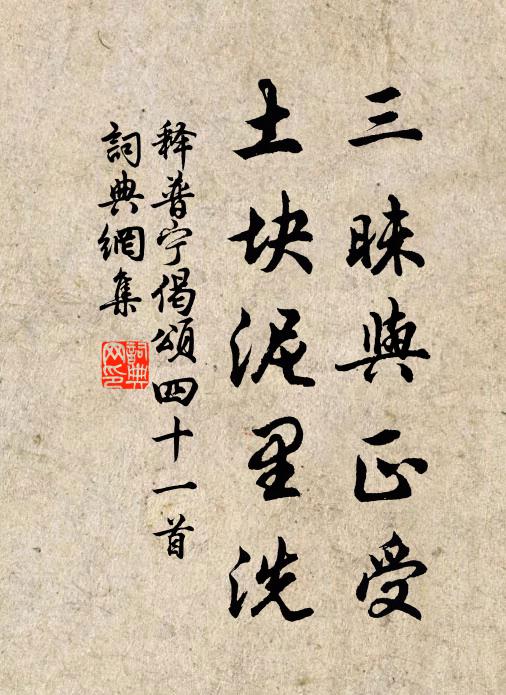 三昧與正受
土块泥里洗
释普宁偈頌四十一首
詞典網集
詞典網印